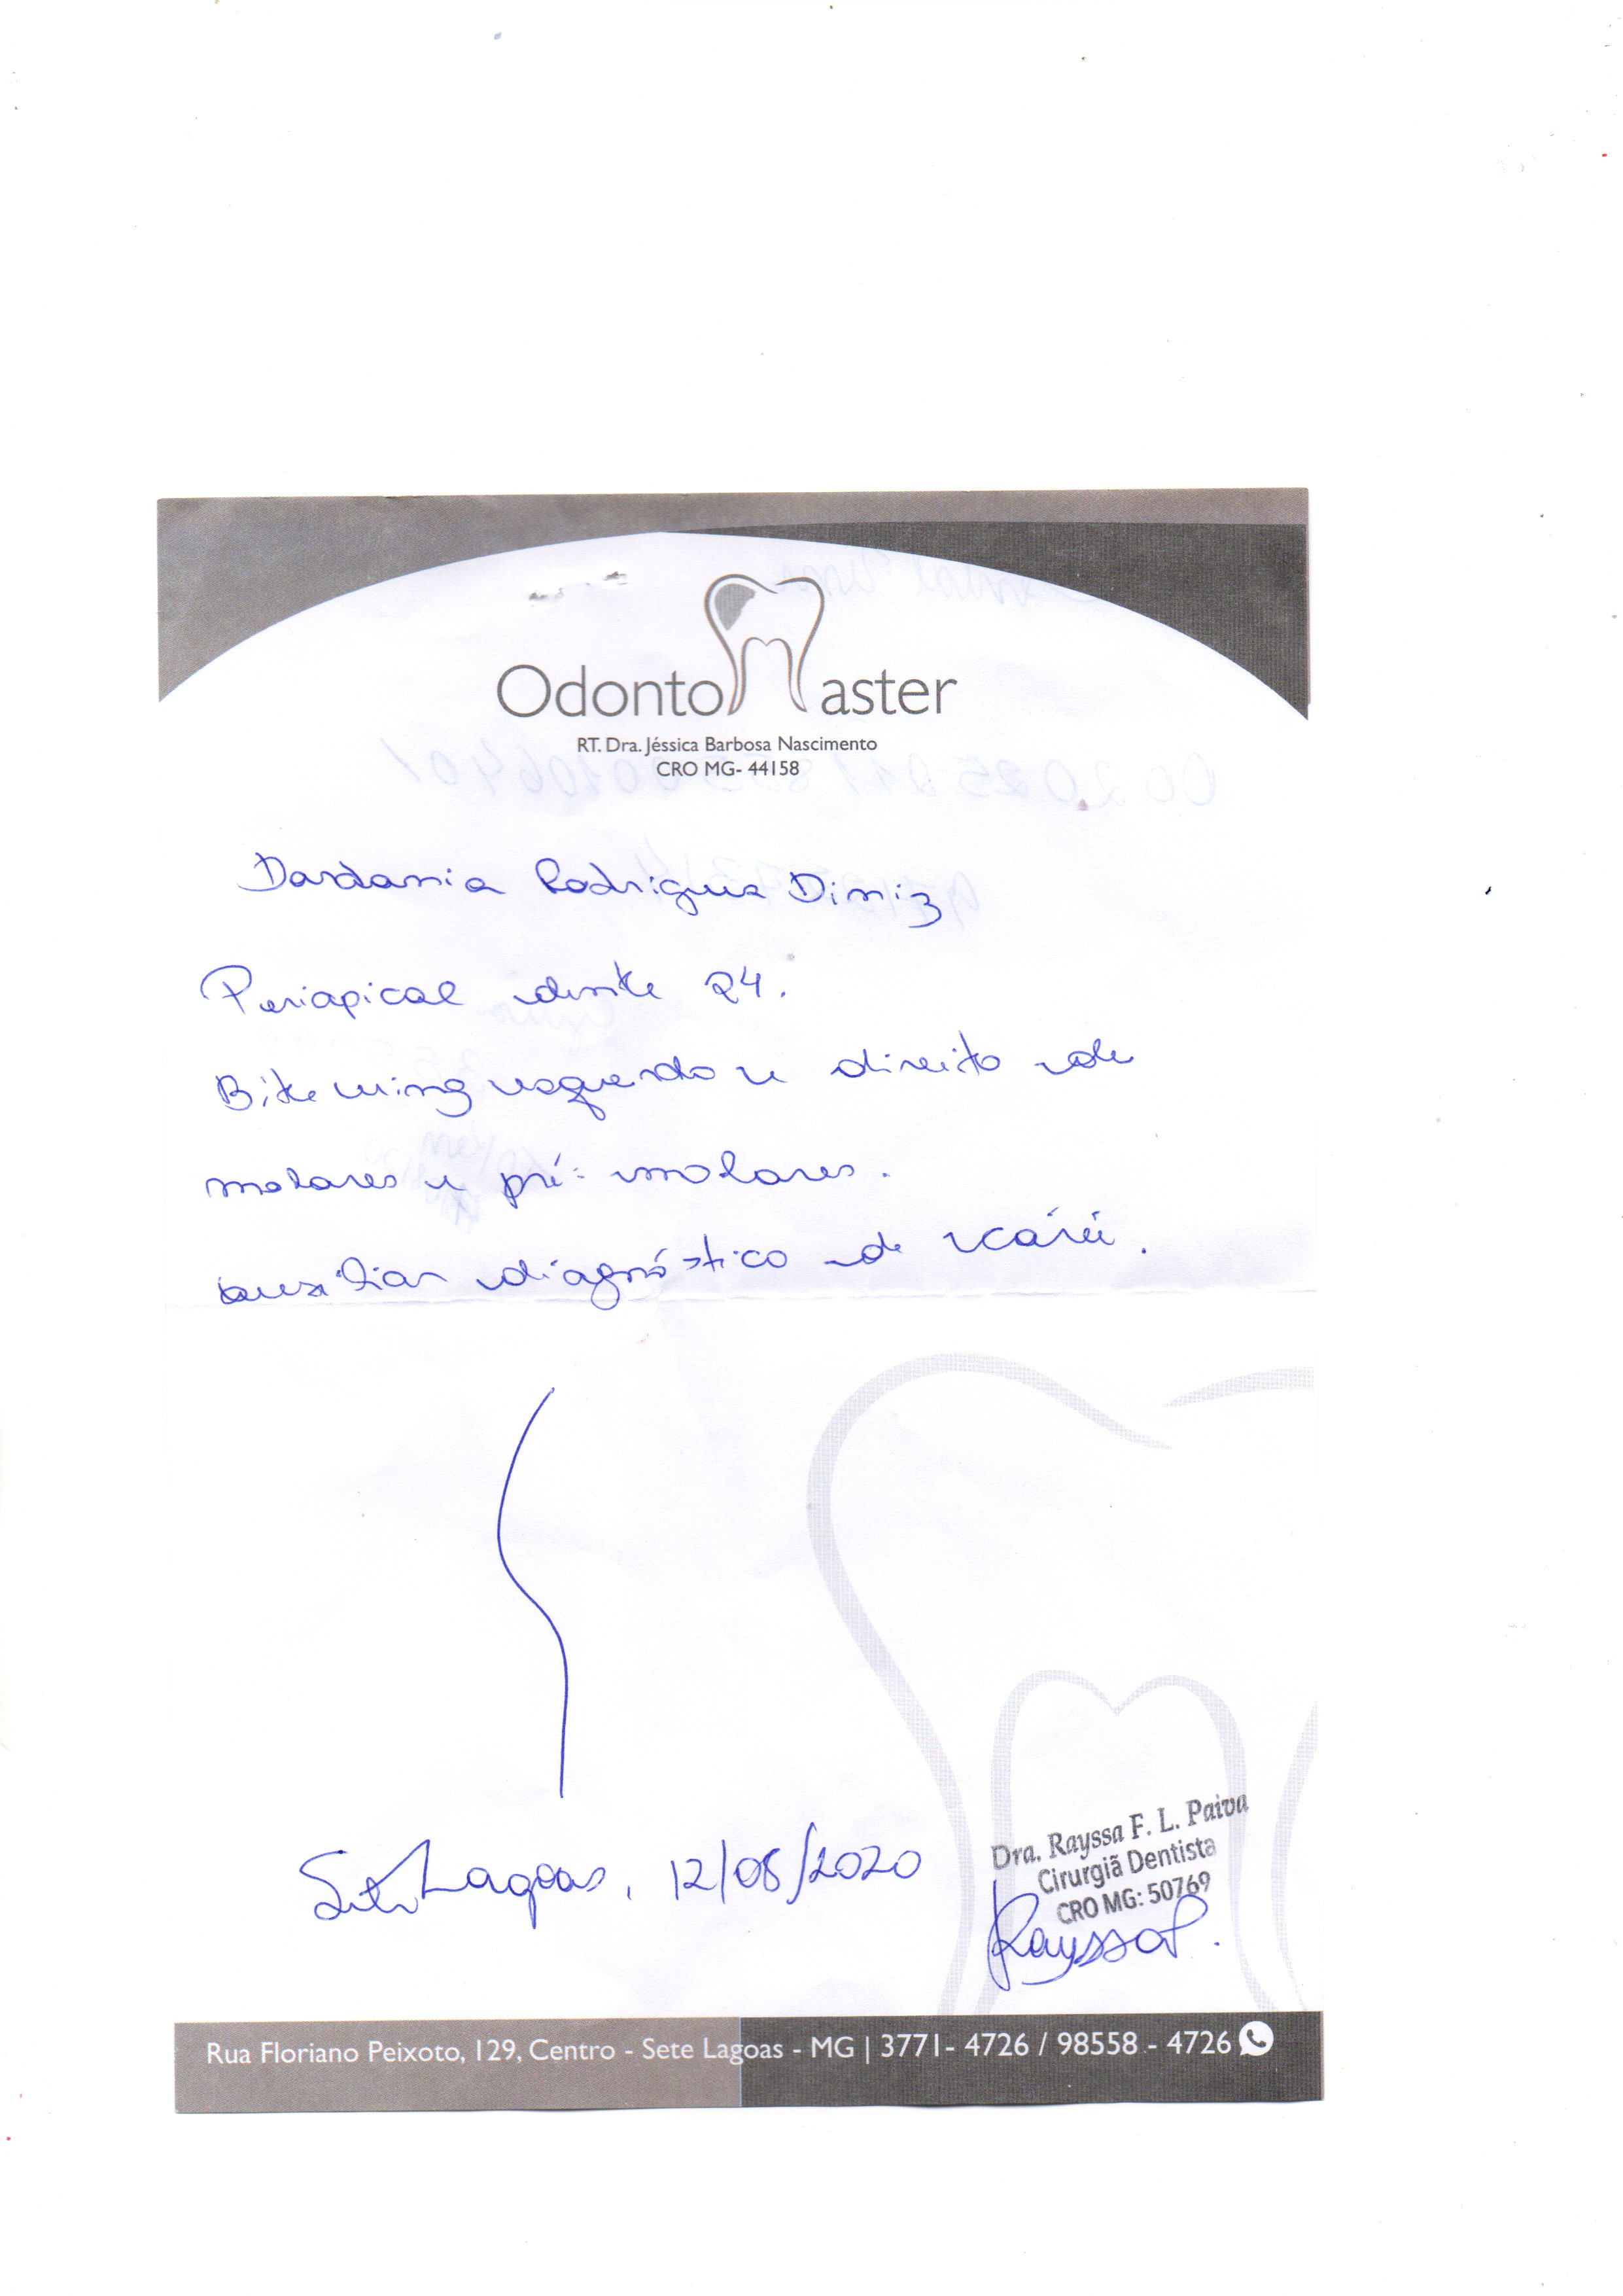 Odonto Master
RT. Dra. Jéssica Barbosa Nascimento
CRO MG- 44158
Dardania Rodrigues Diniz
Periapical dente 24.
Bite wing esquerdo e direito de
molares e pré-molares.
auxiliar diagnóstico de cárie.
Sete Lagoas, 12/08/2020
Dra. Rayssa F. L. Paiva
Cirurgiã Dentista
CRO MG: 50769
RayssaP.
Rua Floriano Peixoto, 129, Centro - Sete Lagoas - MG | 3771- 4726 / 98558 - 4726